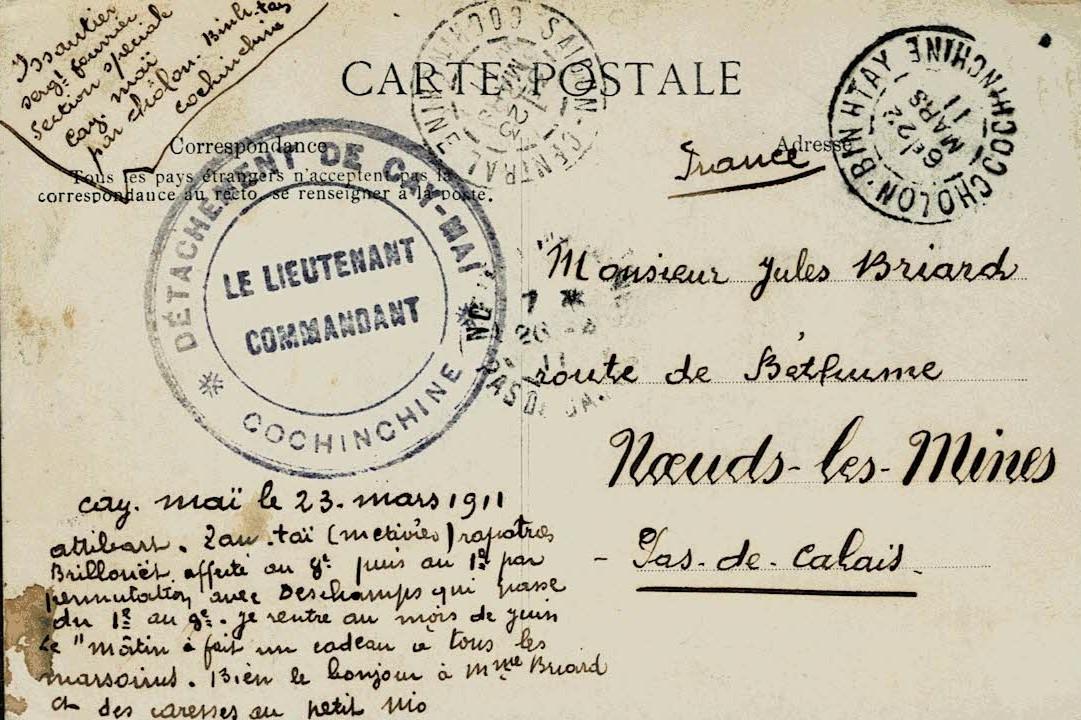 Issautier
sergt fourrier
Section spéciale
Cay. maï
par chôlon. Binh-tay
Cochinchine
CARTE POSTALE
Correspondance
Adresse
Tous les pays étrangers n'acceptent pas la
correspondance au recto, se renseigner à la poste.
SAIGON-CENTRAL
COCHINCHINE
CHOLON-BINHTAY COCHINCHINE
6E
22
MARS
11
DÉTACHEMENT DE CAY-MAÏ
LE LIEUTENANT
COMMANDANT
COCHINCHINE
France
Monsieur Jules Briard
route de Béthume
Nœuds-les-Mines
Pas-de-Calais
7 *
26 -
11
PAS DE CA
cay. maï le 23. mars 1911
attibart. Zau.taï (metivier) rapatriés
Brillouët affecté au 9e puis au 1er par
permutation avec Deschamps qui passe
du 1er au 9e. je rentre au mois de juin
Le "mâtin à fait un cadeau à tous les
marsouins. Bien le bonjour à Mme Briard
et des caresses au petit